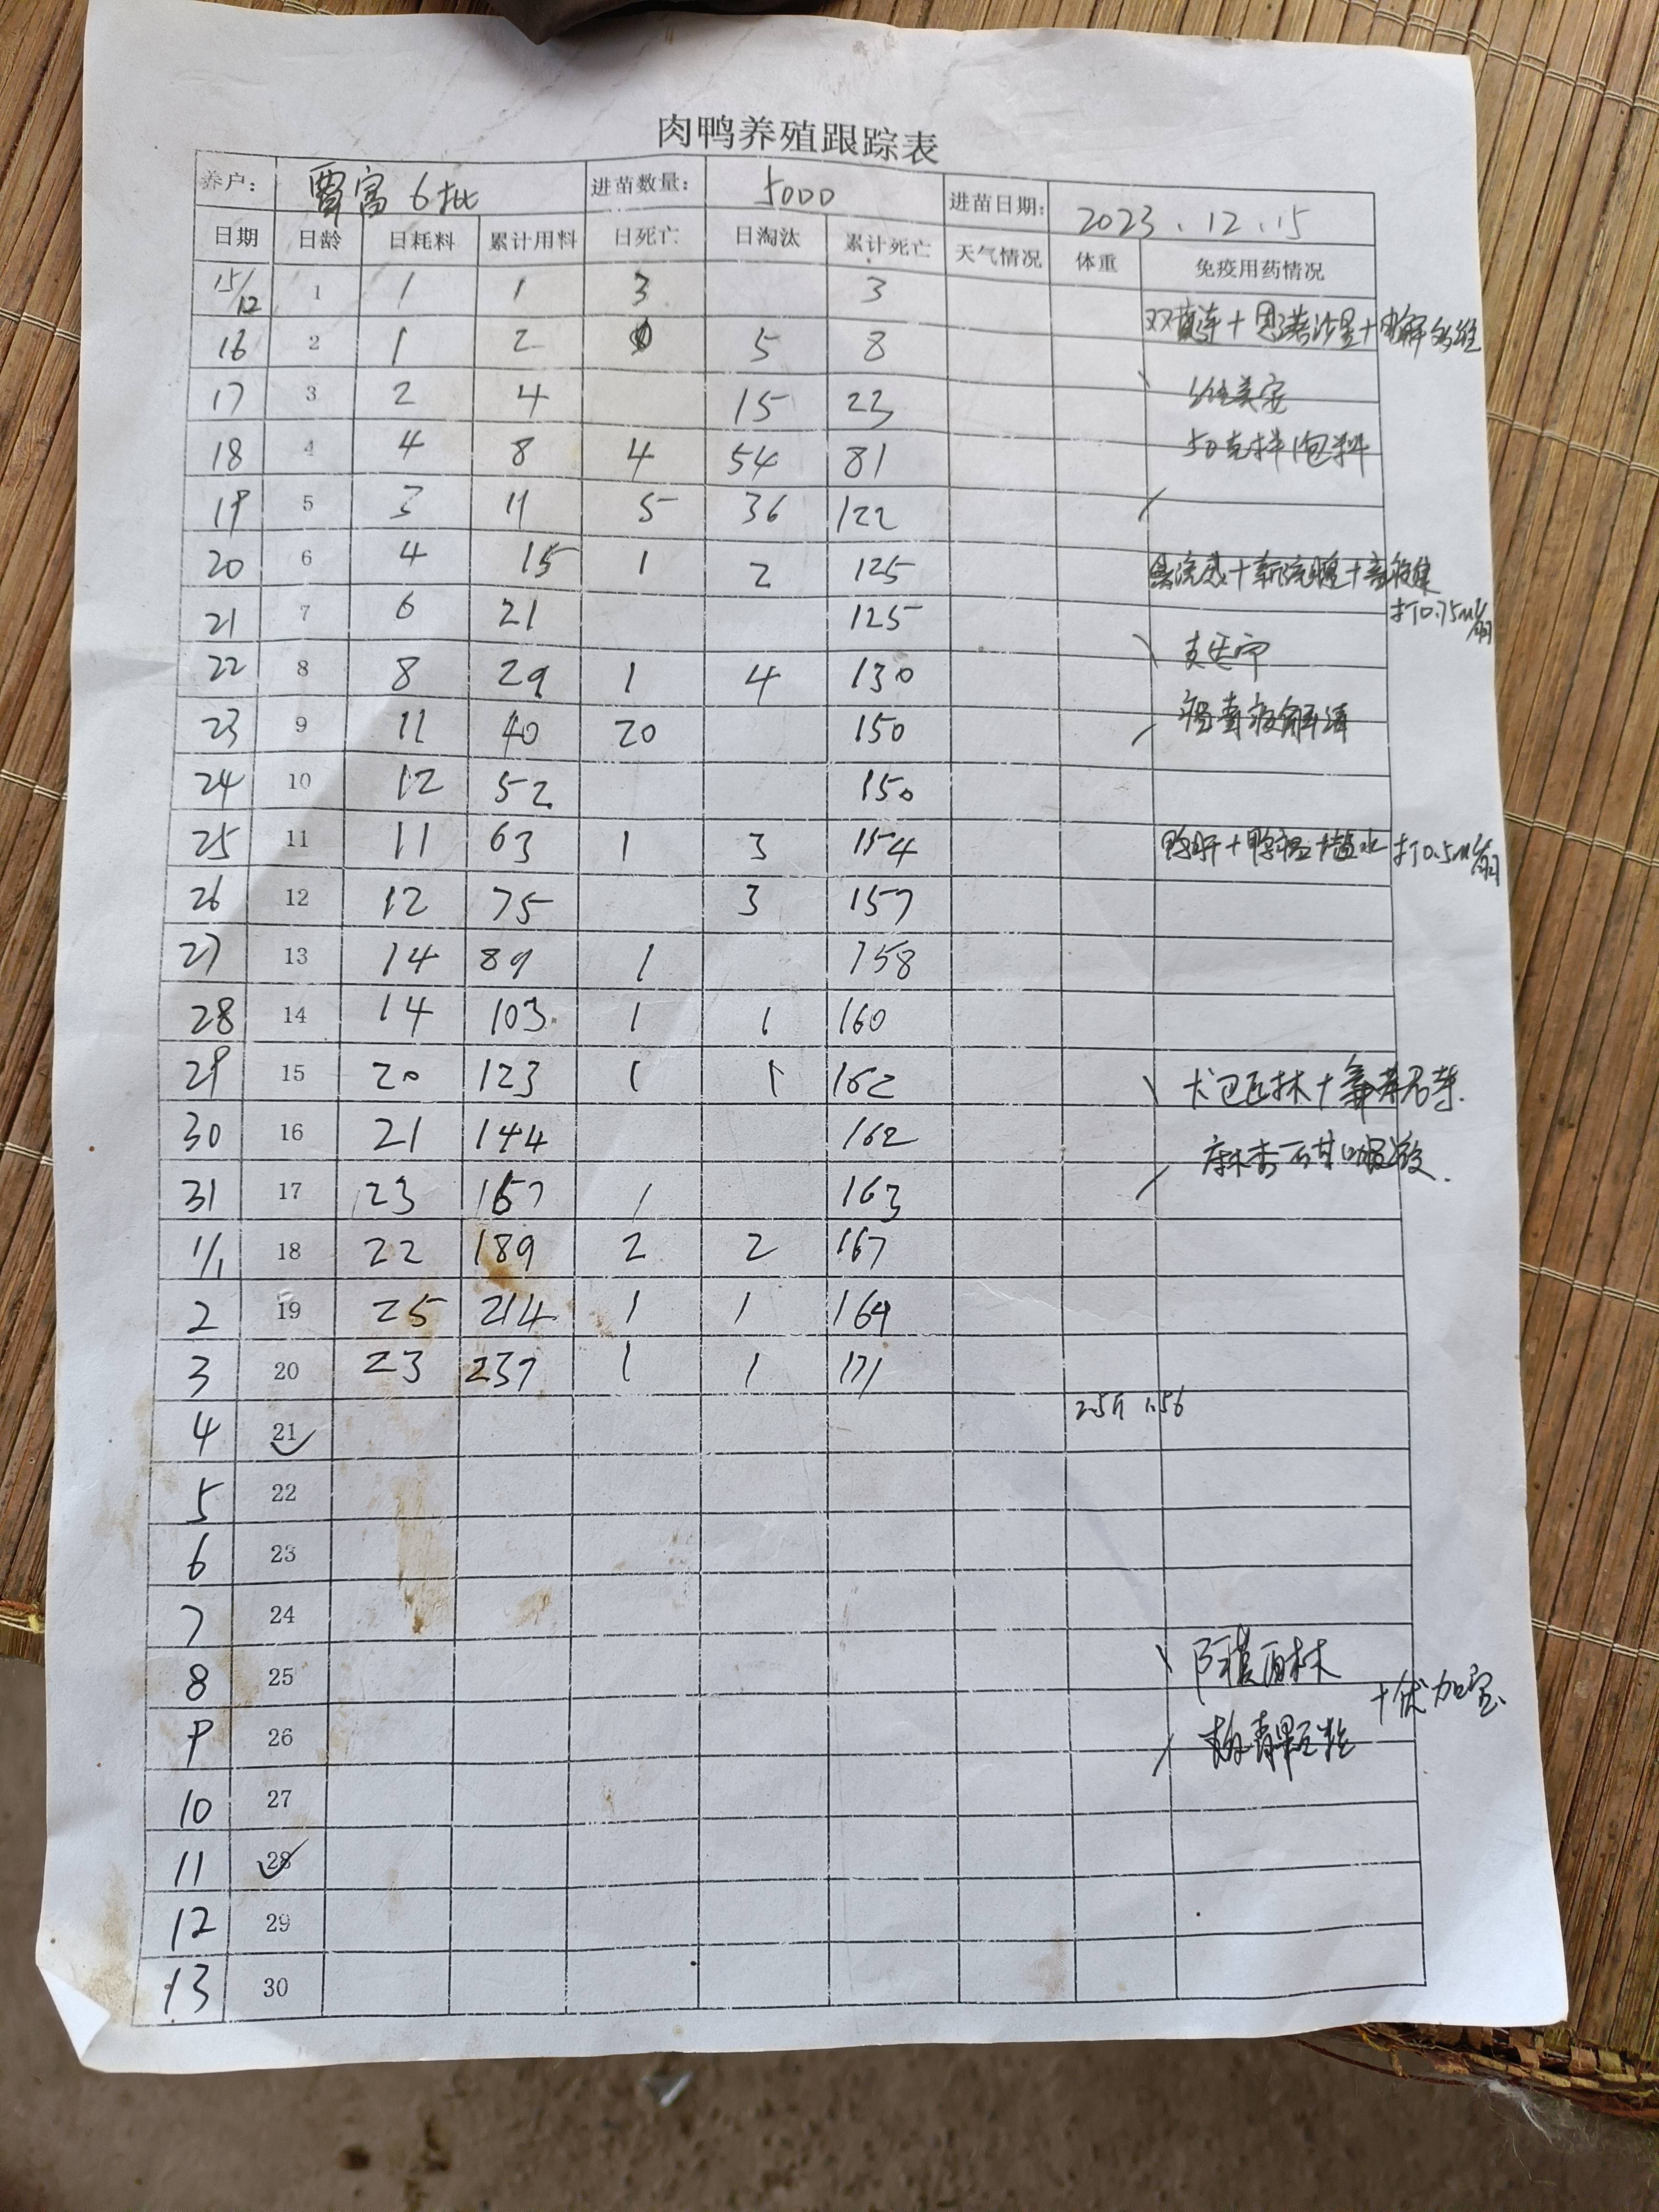 肉鸭养殖跟踪表
养户: 贾富 6批 进苗数量: 5000 进苗日期: 2023.12.15
日期 日龄 日耗料 累计用料 日死亡 日淘汰 累计死亡 天气情况 体重 免疫用药情况
15/12 1 1 1 3 3
16 2 1 2 5 8 双黄连+恩诺沙星+电解多维
17 3 2 4 15 23
18 4 4 8 4 54 81 50克拌1包料
19 5 3 11 5 36 122
20 6 4 15 1 2 125 禽流感+新流腺+
21 7 6 21 125 打0.75ml/羽
22 8 8 29 1 4 130
23 9 11 40 20 150
24 10 12 52 150
25 11 11 63 1 3 154 鸭肝+鸭瘟+盐水 打0.5ml/羽
26 12 12 75 3 157
27 13 14 89 1 158
28 14 14 103 1 1 160
29 15 20 123 1 1 162 卡巴匹林+
30 16 21 144 162 麻杏石甘口服液
31 17 23 167 1 163
1/1 18 22 189 2 2 167
2 19 25 214 1 1 169
3 20 23 237 1 1 171
4 21 2.5斤 1.56
5 22
6 23
7 24
8 25 阿莫西林
9 26 颗粒
10 27
11 28
12 29
13 30